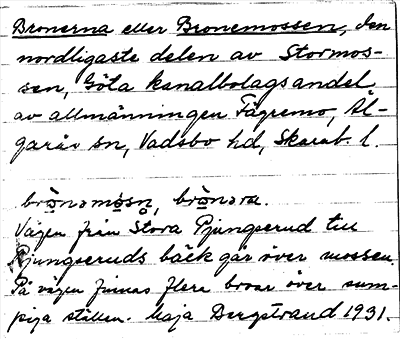 Bronerna eller Bronemossen, den
nordligaste delen av Stormos-
sen, Göta kanalbolags andel
av allmänningen Fägremo, Äl-
garås sn, Vadsbo hd, Skarab. l.
Vägen från Stora Pjungserud till
Pjungseruds bäck går över mossen.
På vägen finnas flera broar över sum-
piga ställen. Maja Bergstrand 1931.